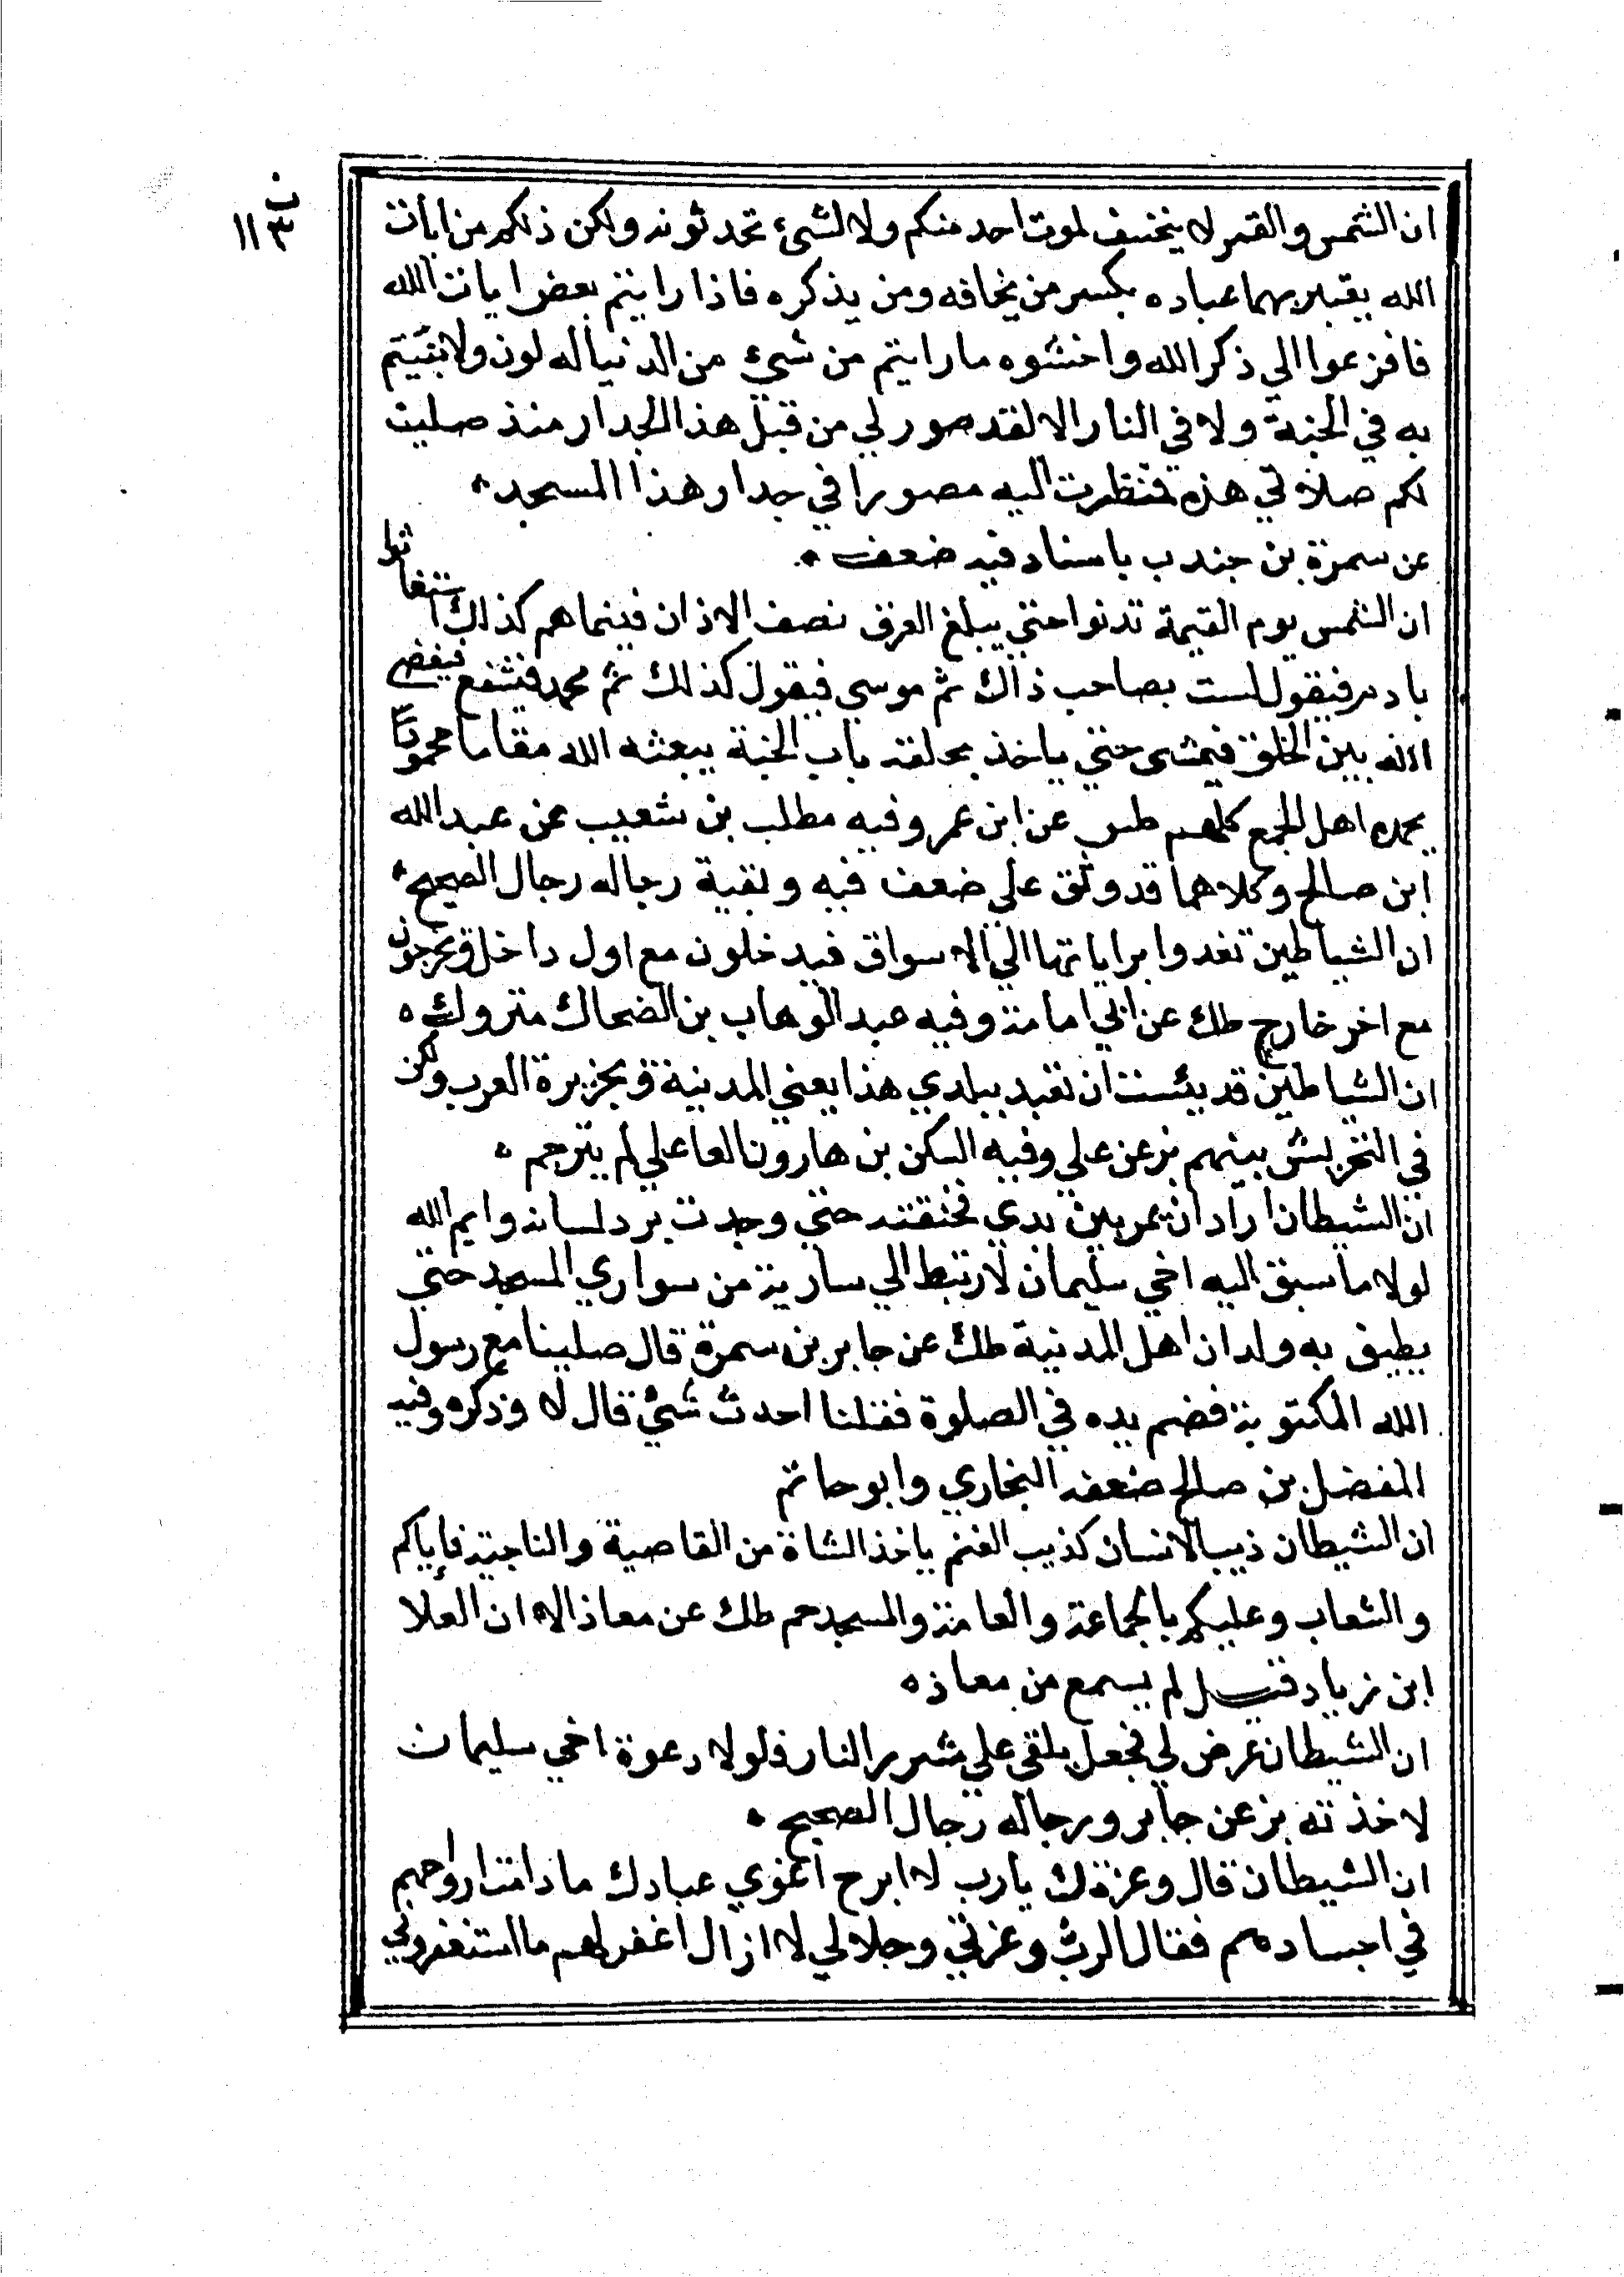 ب
١١٣
ان الشمس والقمر لا ينخسف لموت احد منكم ولا لشيء تحدثونه ولكن ذلكم من ايات
الله يعتبر بهما عباده بكسر من يخافه ومن يذكره فاذا رايتم بعض ايات الله
فافزعوا الي ذكر الله واخشوه ما رايتم من شيء من الدنيا له لون ولا نبئتم
به في الجنة ولا في النار الا لقد صور لي من قبل هذا الجدار منذ صليت
لكم صلاتي هذه فنظرت اليه مصورا في جدار هذا المسجد
عن سمرة بن جندب باسناد فيه ضعف
ان الشمس يوم القيمة تدنوا حتي يبلغ العرق نصف الاذان فبينما هم كذلك استغاثوا
بادم فيقول لست بصاحب ذاك ثم موسي فيقول كذلك ثم محمد فيشفع فيقضي
الله بين الخلق فيمشي حتي ياخذ بحلقة باب الجنة يبعثه الله مقاما محمودا
يحمده اهل الجمع كلهم طس عن ابن عمر وفيه مطلب بن شعيب عن عبد الله
ابن صالح وكلاهما قد وثق علي ضعف فيه وبقية رجاله رجال الصحيح
ان الشياطين تغدوا براياتها الي الاسواق فيدخلون مع اول داخل ويخرجون
مع اخر خارج طك عن ابي امامة وفيه عبد الوهاب بن الضحاك متروك
ان الشياطين قد يئست ان تعبد ببلدي هذا يعني المدينة وبجزيرة العرب ولكن
في التحريش بينهم بز عن علي وفيه السكن بن هارون العاعلي لم يترجم
ان الشيطان اراد ان يمر بين يدي فخنقته حتي وجدت برد لسانه وايم الله
لولا ما سبق اليه اخي سليمان لارتبط الي سارية من سواري المسجد حتي
يطيف به ولدان اهل المدينة طك عن جابر بن سمرة قال صلينا مع رسول
الله المكتوبة فضم يده في الصلوة فقلنا احدث شيء قال لا وذكره وفيه
المفضل بن صالح ضعفه البخاري وابو حاتم
ان الشيطان ذيب الانسان كذيب الغنم ياخذ الشاة من القاصية والناحية فاياكم
والشعاب وعليكم بالجماعة والعامة والمسجد حم طك عن معاذ الا ان العلا
ابن زياد قيل لم يسمع من معاذ
ان الشيطان عرض لي فجعل يلقي علي شرر النار فلولا دعوة اخي سليمان
لاخذته بز عن جابر ورجاله رجال الصحيح
ان الشيطان قال وعزتك يارب لا ابرح اغوي عبادك ما دامت ارواحهم
في اجسادهم فقال الرب وعزتي وجلالي لا ازال اغفر لهم ما استغفروني